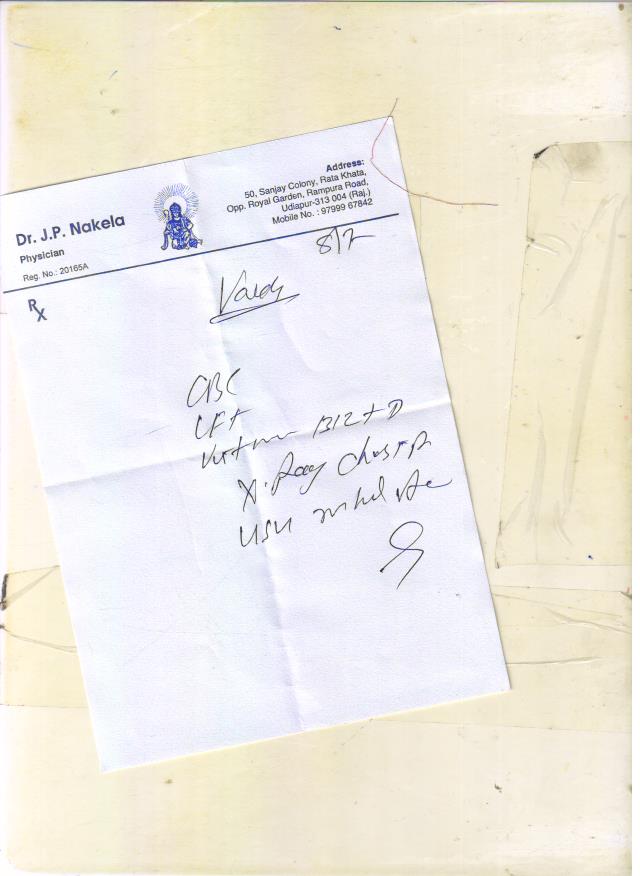 Dr. J.P. Nakela
Physician
Reg. No.: 20165A
Address:
50, Sanjay Colony, Rata Khata,
Opp. Royal Garden, Rampura Road,
Udiapur-313 004 (Raj.)
Mobile No. : 97999 67842
8/2
Rx
CBC
LFT
B12 + D
X-Ray Chest